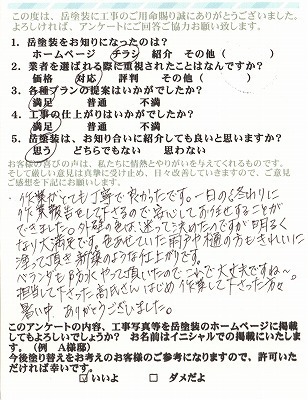 この度は、岳塗装に工事のご用命賜り誠にありがとうございました。
よろしければ、アンケートにご回答ご協力お願い致します。
1. 岳塗装をお知りになったのは?
ホームページ チラシ 紹介 その他( )
2. 業者を選ばれる際に重視されたことはなんですか?
価格 対応 評判 その他( )
3. 各種プランの提案はいかがでしたか?
満足 普通 不満
4. 工事の仕上がりはいかがでしたか?
満足 普通 不満
5. 岳塗装は、お知り合いに紹介しても良いと思いますか?
思う どちらでもない 思わない
お客様の喜びの声は、私たちに情熱とやりがいを与えてくれるものです。
そして厳しい意見は真摯に受け止め、日々改善していきますので、ご意見
ご感想を下記にお願いします。
・作業がとても丁寧で良かったです。一日の終わりに
作業報告をして下さるので安心してお任せすることが
できました。外壁の色は、迷って決めたのですが明るく
なり大満足です。色あせていた雨戸や樋の方もきれいに
塗って頂き新築のような仕上がりです。
ベランダも防水やって頂いたのでこれで大丈夫ですね〜。
担当して下さった高氏さんはじめ作業して下さった方々
暑い中 ありがとうございました。
このアンケートの内容、工事写真等を岳塗装のホームページに掲載
してもよろしいでしょうか? お名前はイニシャルでの掲載にいたしま
す。(例 A様邸)
今後塗り替えをお考えのお客様のご参考になりますので、許可いた
だければ幸いです。
☑ いいよ □ ダメだよ